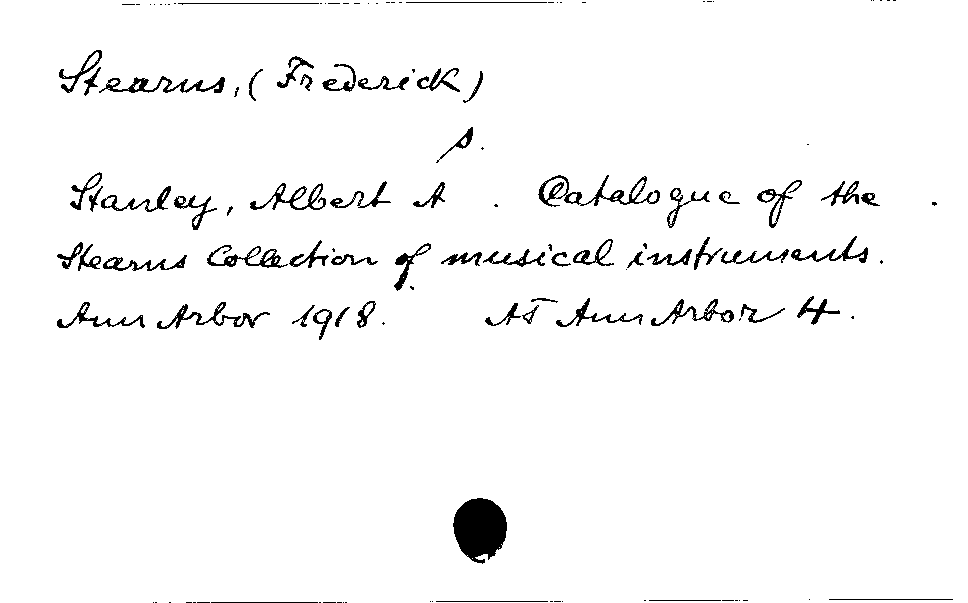 Stearns, (Frederick)
s.
Stanley, Albert A. Catalogue of the
Stearns Collection of musical instruments.
Ann Arbor 1918. AT Ann Arbor 4.